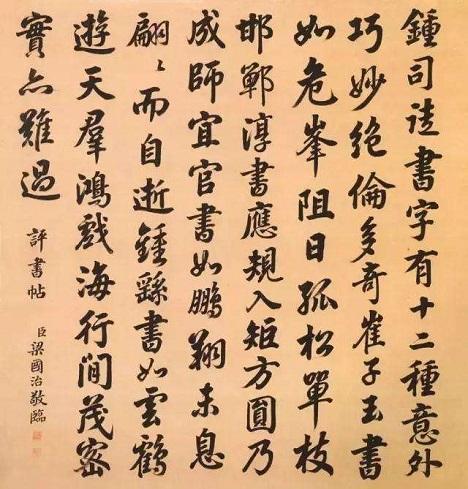 鍾司徒書字有十二種意外
巧妙絕倫多奇崔子玉書
如危峯阻日孤松單枝
邯鄲淳書應規入矩方圓乃
成師宜官書如鵬翔未息
翩〻而自逝鍾繇書如雲鶴
遊天羣鴻戲海行間茂密
實亦難過
評書帖
臣梁國治敬臨